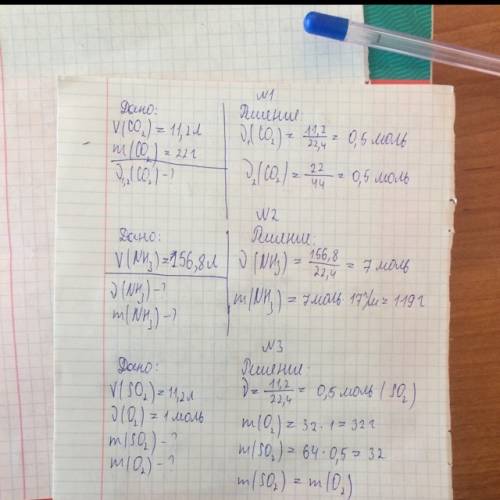 N1
Дано:
V(CO₂) = 11,2л
m(CO₂) = 22г
ν₁,₂(CO₂) - ?
Решение:
ν₁(CO₂) = 11,2/22,4 = 0,5 моль
ν₂(CO₂) = 22/44 = 0,5 моль
N2
Дано:
V(NH₃) = 156,8л
ν(NH₃) - ?
m(NH₃) - ?
Решение:
ν(NH₃) = 156,8/22,4 = 7 моль
m(NH₃) = 7моль · 17г/м = 119г
N3
Дано:
V(SO₂) = 11,2л
ν(O₂) = 1 моль
m(SO₂) - ?
m(O₂) - ?
Решение:
ν = 11,2/22,4 = 0,5 моль (SO₂)
m(O₂) = 32 · 1 = 32г
m(SO₂) = 64 · 0,5 = 32
m(SO₂) = m(O₂)